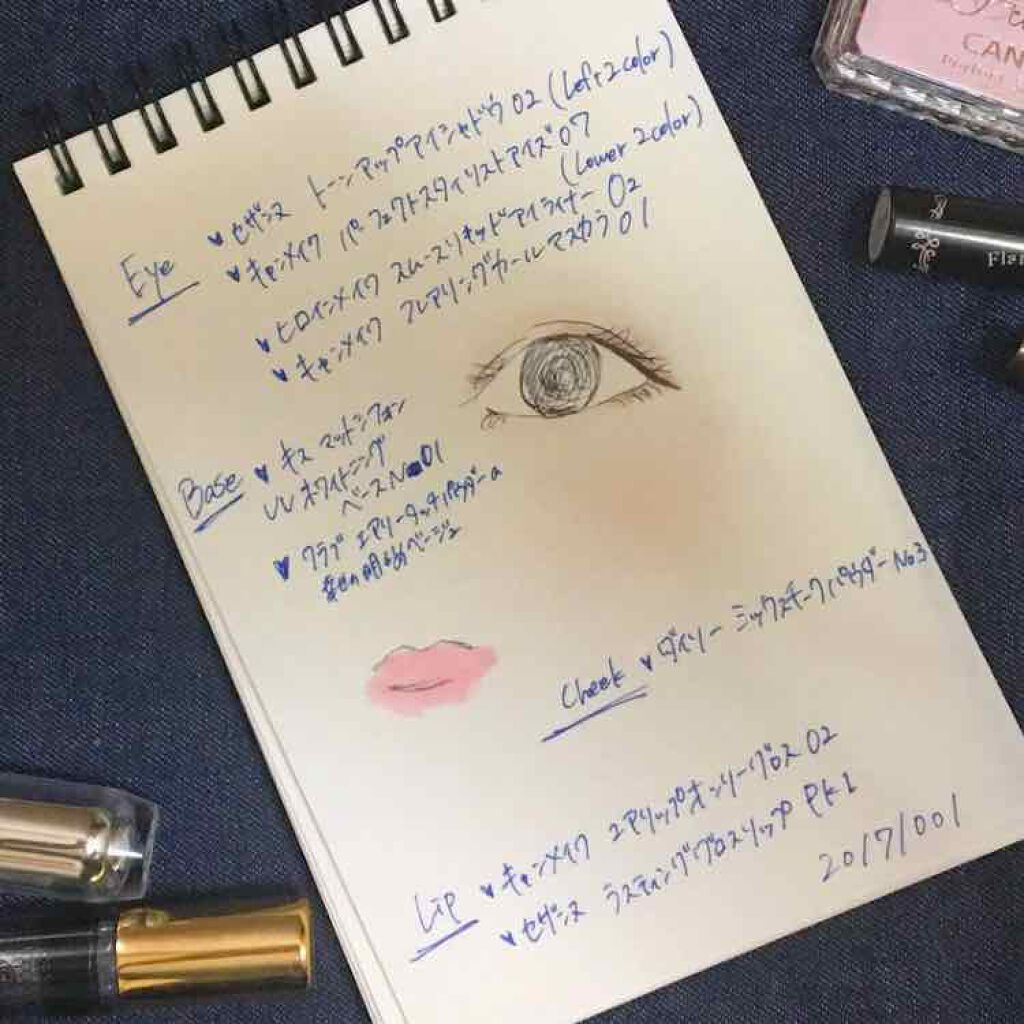 Eye
♥ セザンヌ トーンアップアイシャドウ 02 (Left 2 color)
♥ キャンメイク パーフェクトスタイリストアイズ 07
(Lower 2 color)
♥ ヒロインメイク スムースリキッドアイライナー 02
♥ キャンメイク フレアリングカールマスカラ 01
Base ♥ キス マットシフォン
UV ホワイトニング
ベースN 01
♥ クラブ エアリータッチパウダー a
ベージュ
Cheek ♥ ダイソー ミックスチークパウダー No3
Lip ♥ キャンメイク エアリップオンリーグロス 02
♥ セザンヌ ラスティンググロスリップ PK1
2017/001
CAN
Flar